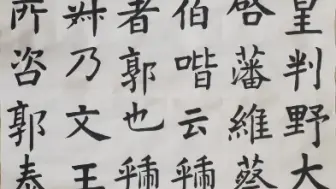 星判野大
啓藩維蔡
伯喈云虢
者郭也虢
叔乃文王
所咨郭泰